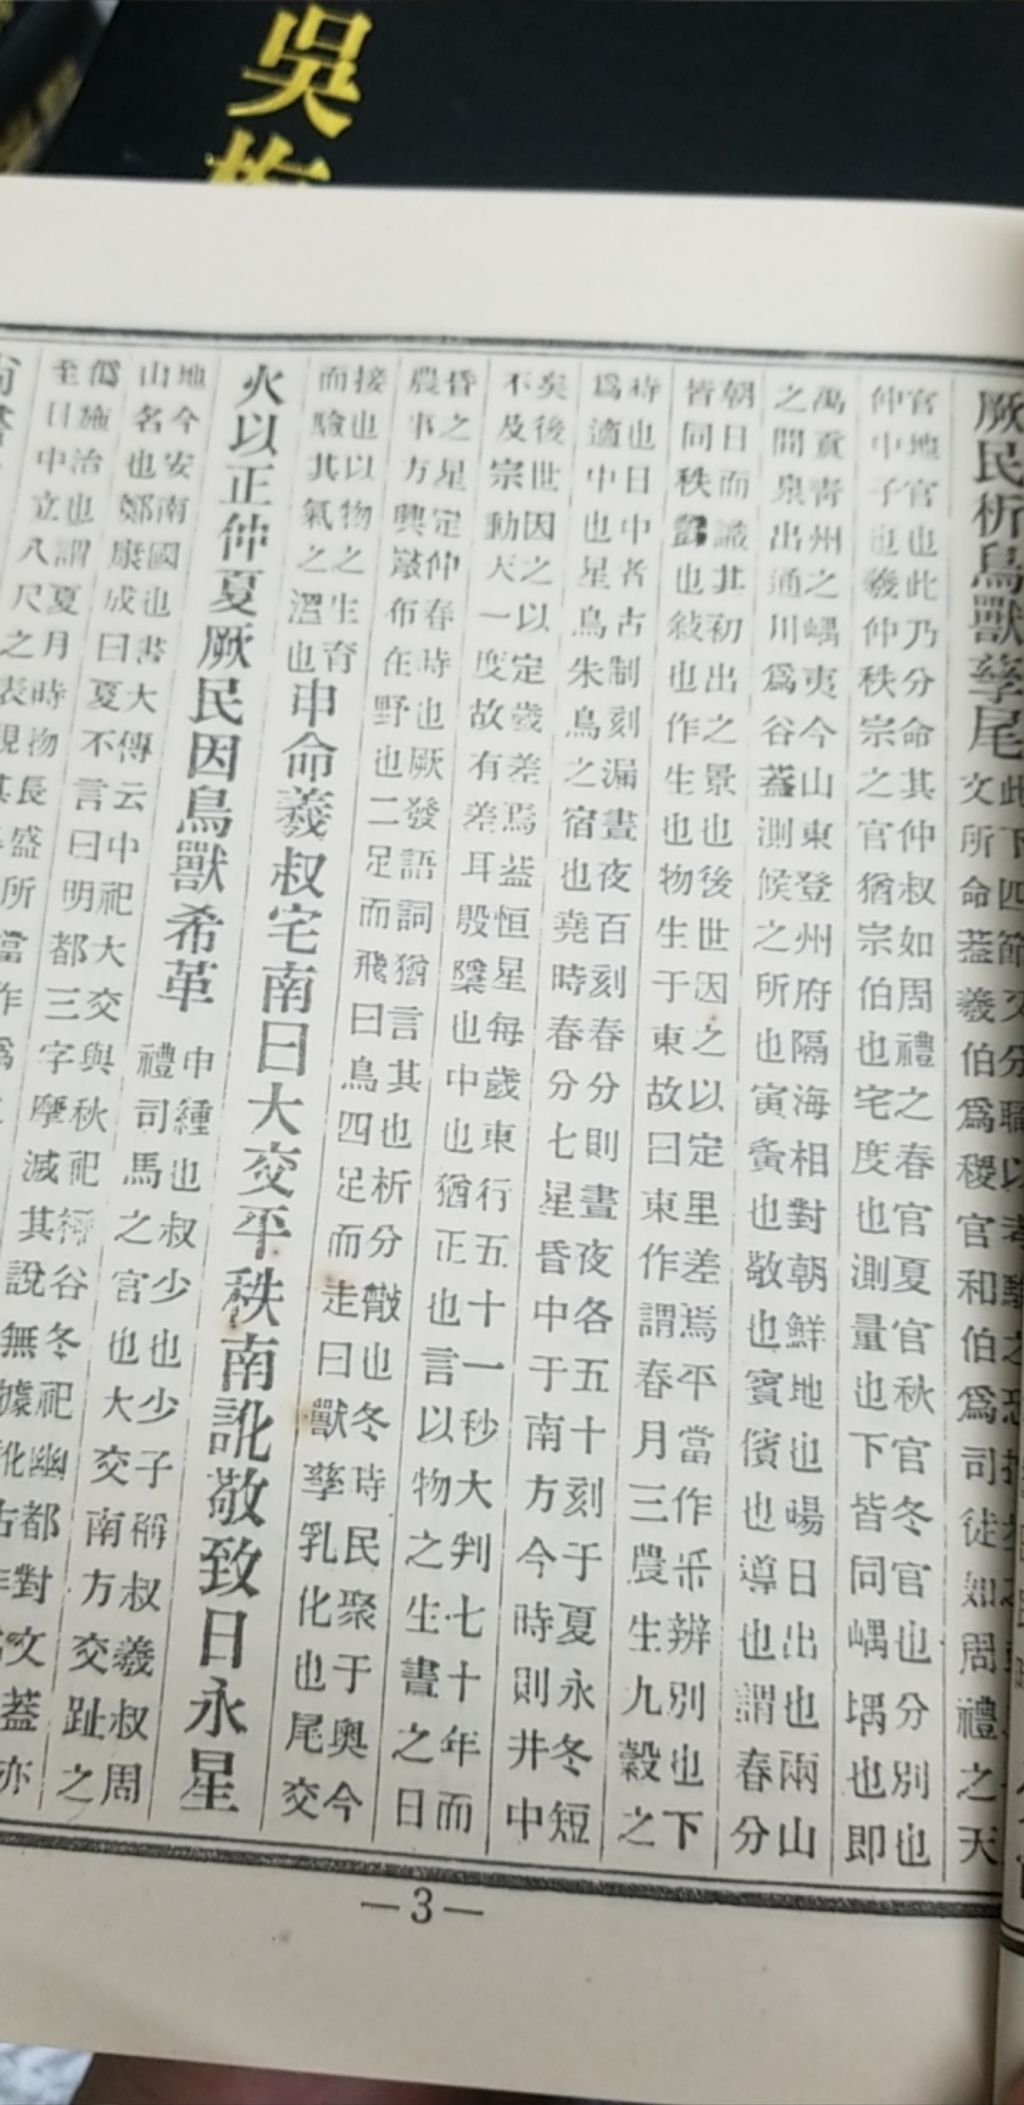 吳
厥民析鳥獸孳尾
此下四節文分職以考驗之恐
文所命蓋羲伯爲稷官和伯爲司徒如周禮之天
官地官也此乃分命其仲叔如周禮之春官夏官秋官冬官也分別也
仲中子也羲仲秩宗之官猶宗伯也宅度也測量也下皆同嵎堣也即
禹貢靑州之嵎夷今山東登州府隔海相對朝鮮地也暘日出也兩山
之間泉出通川爲谷蓋測候之所也寅夤也敬也賓儐也導也謂春分
朝日而識其初出之景也後世因之以定里差焉平當作釆辨別也下
皆同秩豑也敍也作生也物生于東故曰東作謂春月三農生九穀之
時也日中者古制刻漏晝夜百刻春分則晝夜各五十刻于夏永冬短
爲適中也星鳥朱鳥之宿也堯時春分七星昏中于南方今時則井中
矣後世因之以定歲差焉蓋恒星每歲東行五十一秒大判七十年而
不及宗動天一度故有差耳殷㯳也中也猶正也言以物之生晝之日
昏之星定仲春時也厥發語詞猶言其也析分㪚也冬時民聚于奧今
農事方興㪚布在野也二足而飛曰鳥四足而走曰獸孳乳化也尾交
接也以物之生育
而驗其氣之溼也
申命羲叔宅南曰大交平秩南訛敬致日永星
火以正仲夏厥民因鳥獸希革
申緟也叔少也少子稱叔羲叔周
禮司馬之官也大交南方交趾之
地今安南國也書大傳云中祀大交與秋祀柳谷冬祀幽都對文蓋亦
山名也鄭康成曰夏不言曰明都三字摩滅其說無據訛古作
僞施治也謂夏月時物長盛所當作爲
至日中立八尺之表視其
—3—